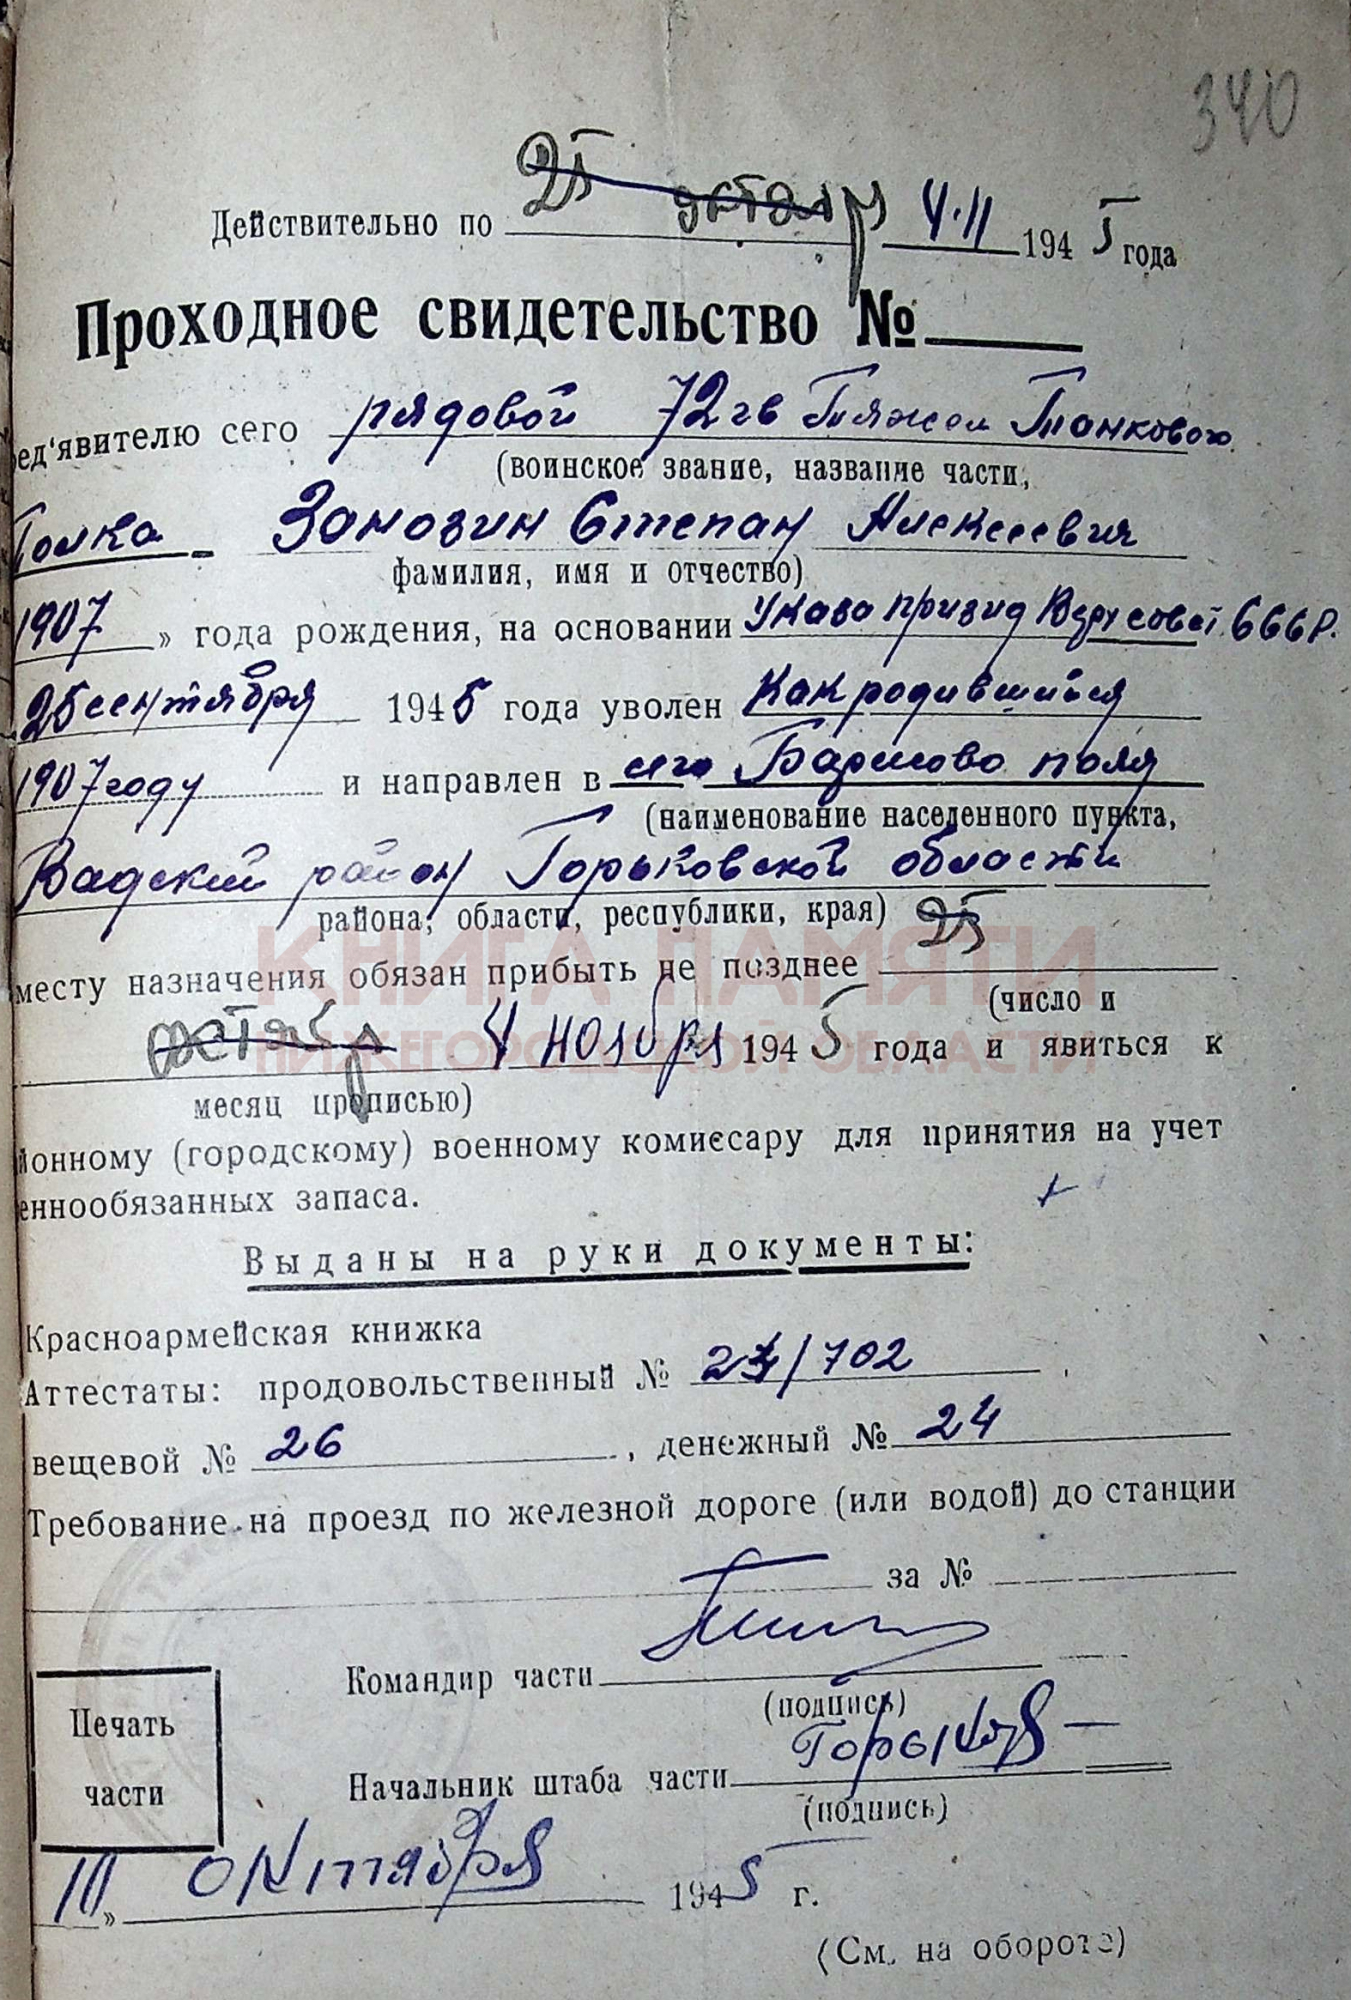 340
Действительно по 25 октябр 4.11 1945 года
Проходное свидетельство №
ед'явителю сего рядовой 72 гв Тяжел Танкового
(воинское звание, название части,
Полка Занозин Степан Алексеевич
фамилия, имя и отчество)
1907 » года рождения, на основании Указа презид Верх совет СССР.
25 сентября 1945 года уволен как родившийся
1907 году и направлен в село Борисово поля
(наименование населенного пункта,
Вадский район Горьковской области
района, области, республики, края)
месту назначения обязан прибыть не позднее 25
(число и
октябр 4 ноября 1945 года и явиться к
месяц прописью)
йонному (городскому) военному комиссару для принятия на учет
еннообязанных запаса.
Выданы на руки документы:
Красноармейская книжка
Аттестаты: продовольственный № /702
вещевой № 26, денежный № 24
Требование на проезд по железной дороге (или водой) до станции
за №
Командир части
(подпись)
Печать
части
Начальник штаба части
(подпись)
10 » октября 1945 г.
(См. на обороте)
КНИГА ПАМЯТИ
НИЖЕГОРОДСКОЙ ОБЛАСТИ